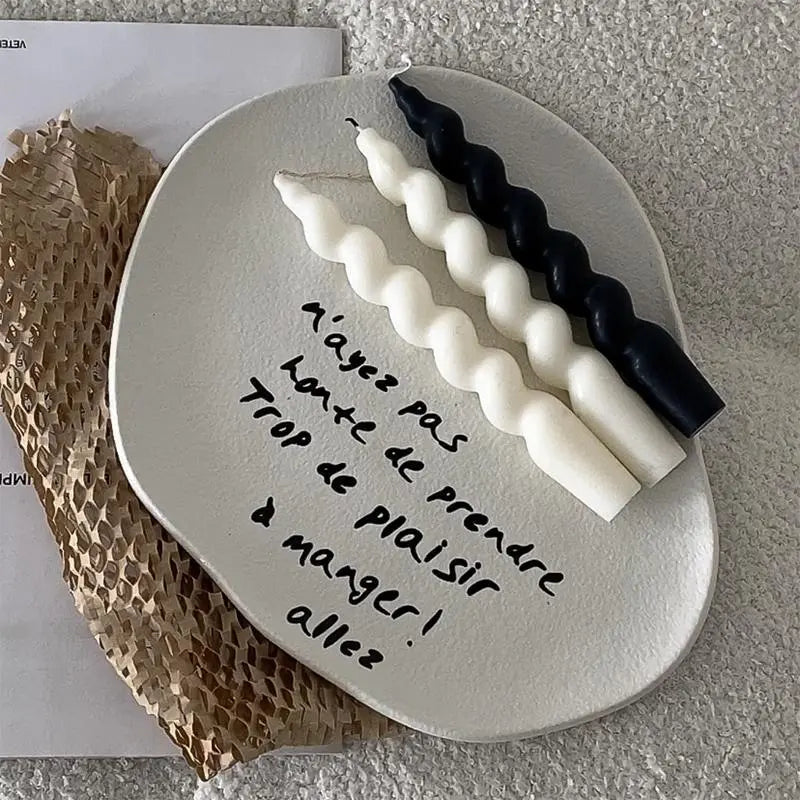 n'ayez pas
honte de prendre
Trop de plaisir
à manger!
allez